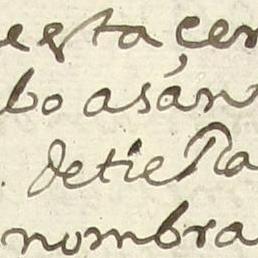 esta çer
bo asan
detierra
nombra